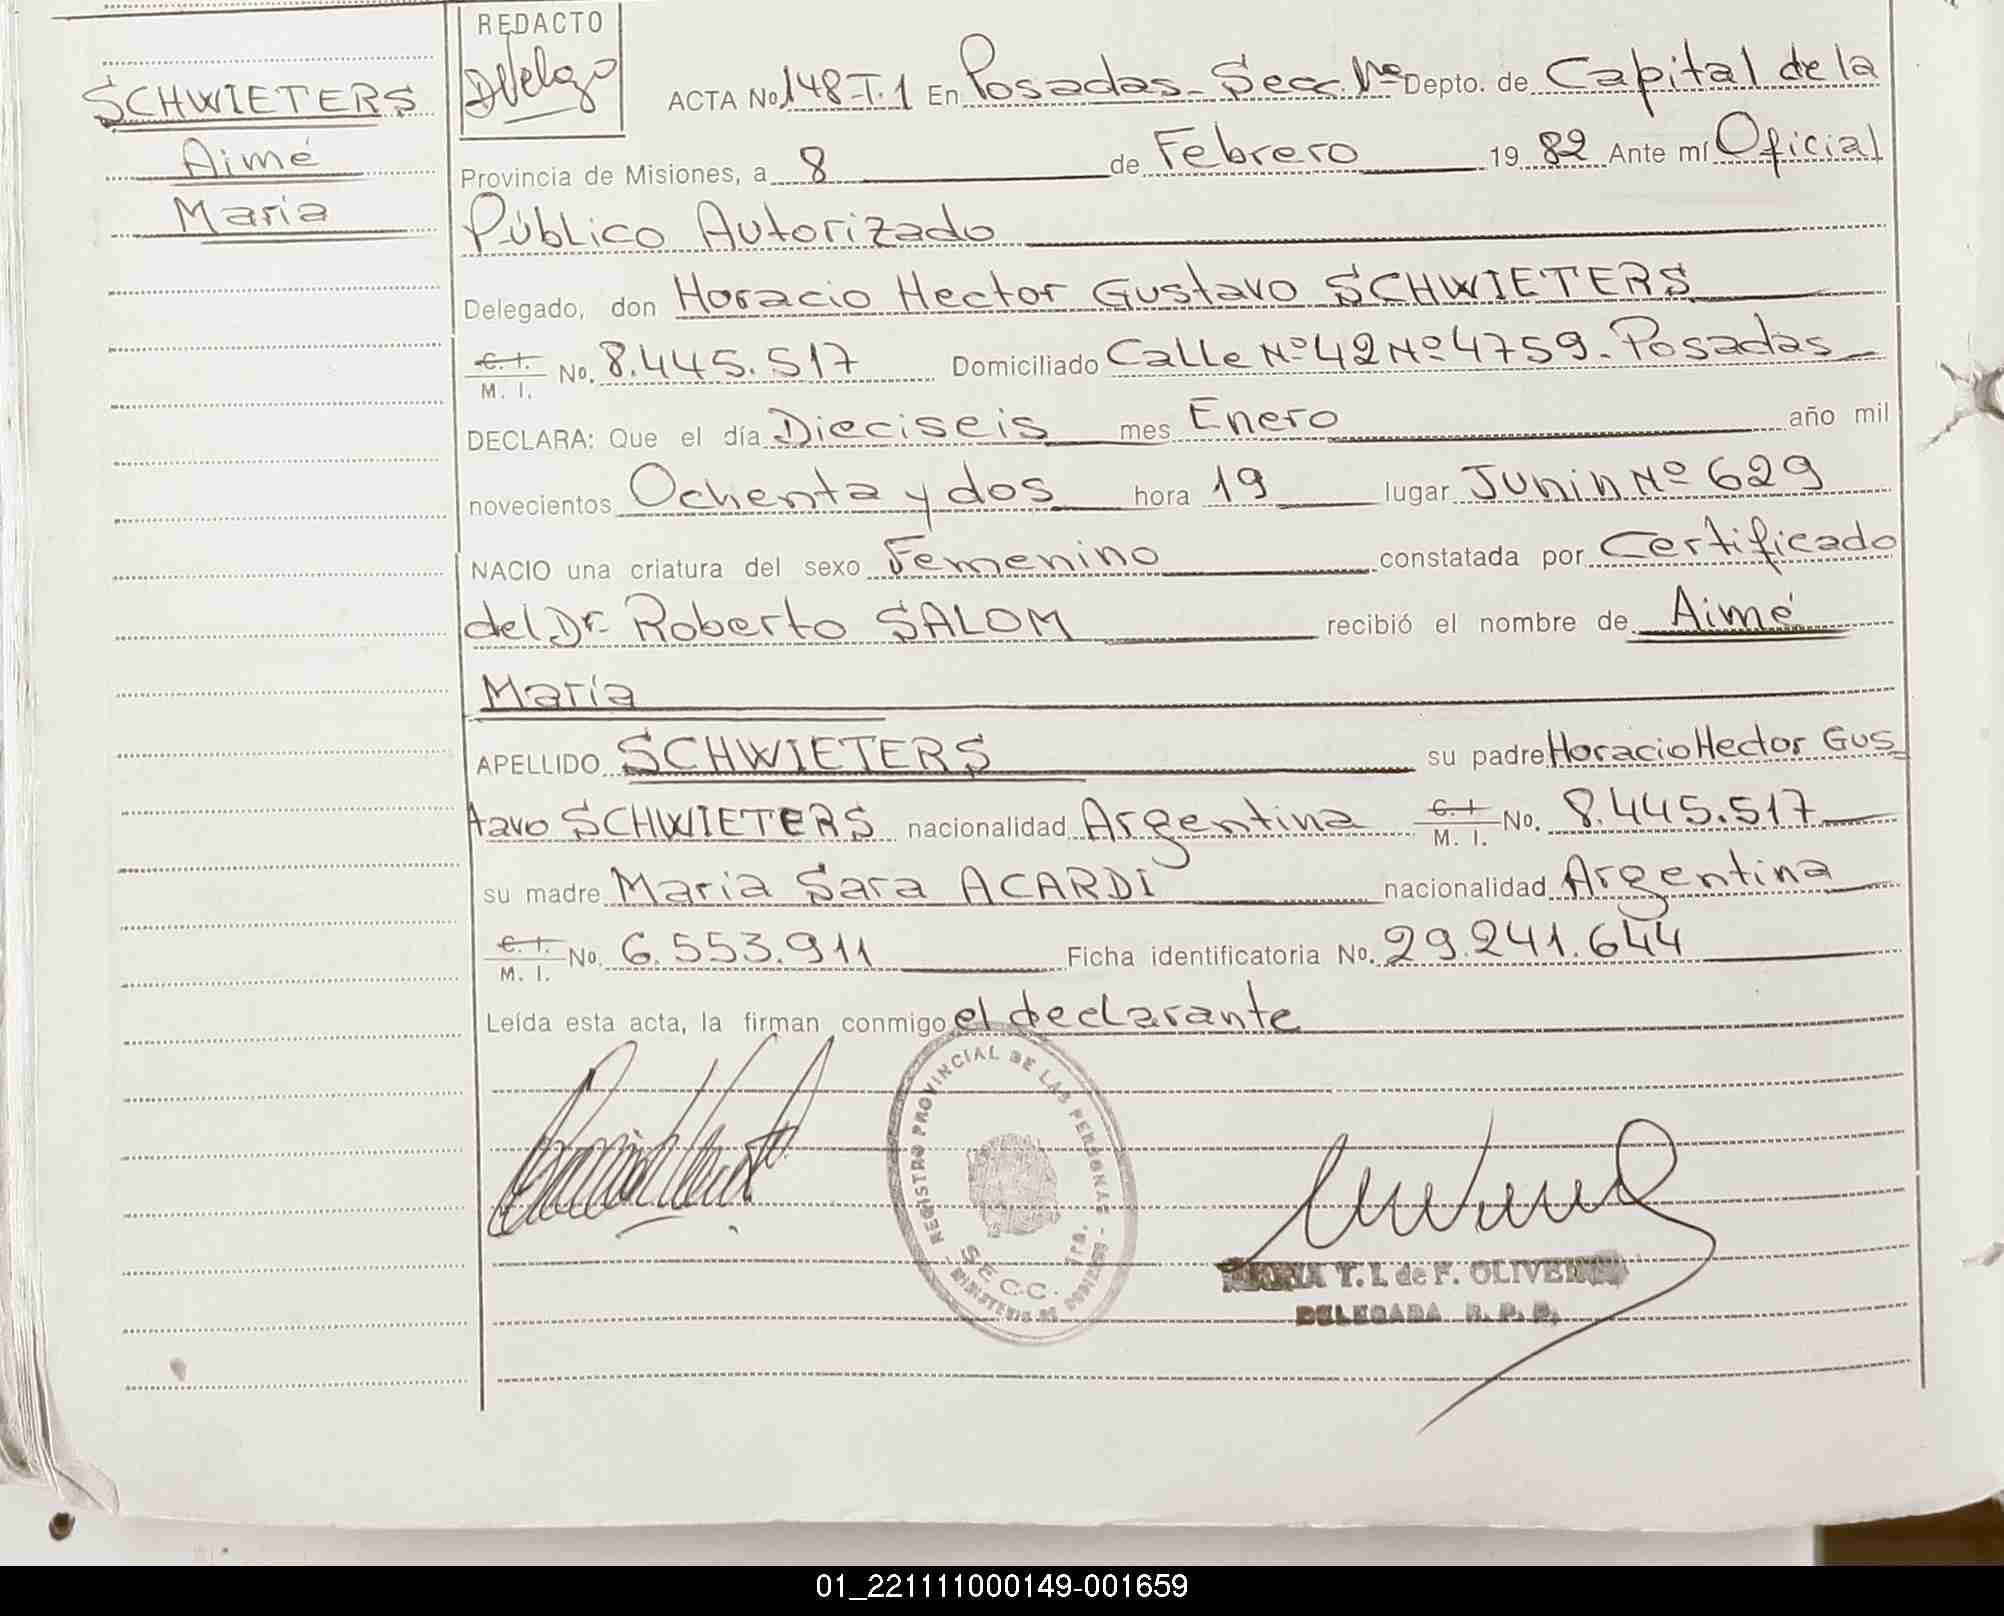 SCHWIETERS
Aimé
Maria
REDACTO
ACTA No 148-T.1 En Posadas - Secc. 1ª Depto. de Capital de la
Provincia de Misiones, a 8 de Febrero 19 82 Ante mí Oficial
Público Autorizado
Delegado, don Horacio Hector Gustavo SCHWIETERS
C. I.
M. I. No. 8.445.517 Domiciliado Calle Nº 42 Nº 4759. Posadas
DECLARA: Que el día Dieciseis mes Enero año mil
novecientos Ochenta y dos hora 19 lugar Junin Nº 629
NACIO una criatura del sexo Femenino constatada por Certificado
del Dr. Roberto SALOM recibió el nombre de Aimé
María
APELLIDO SCHWIETERS su padre Horacio Hector Gus-
tavo SCHWIETERS nacionalidad Argentina C. I. M. I. No. 8.445.517
su madre Maria Sara ACARDI nacionalidad Argentina
C. I.
M. I. No. 6.553.911 Ficha identificatoria No. 29.241.644
Leída esta acta, la firman conmigo el declarante
REGISTRO PROVINCIAL DE LAS PERSONAS
SECC. 1ra.
MINISTERIO DE GOBIERNO
MARIA T. I. de F. OLIVEIRA
DELEGADA R. P. P.
01_221111000149-001659